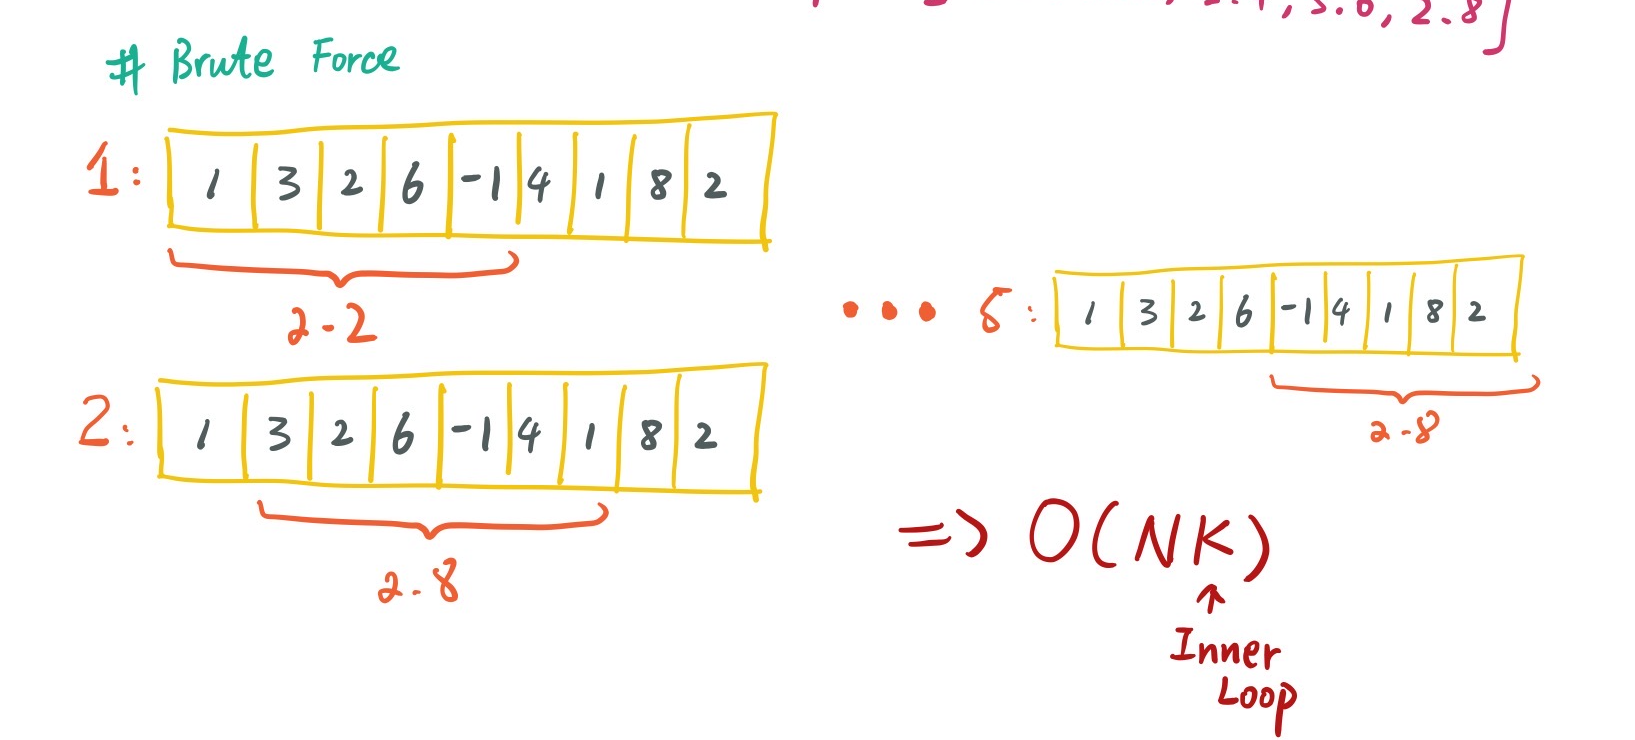 2.4, 3.6, 2.8]
# Brute Force
1: 1 3 2 6 -1 4 1 8 2
2.2
2: 1 3 2 6 -1 4 1 8 2
2.8
... 5: 1 3 2 6 -1 4 1 8 2
2.8
=> O(NK)
↑
Inner
Loop